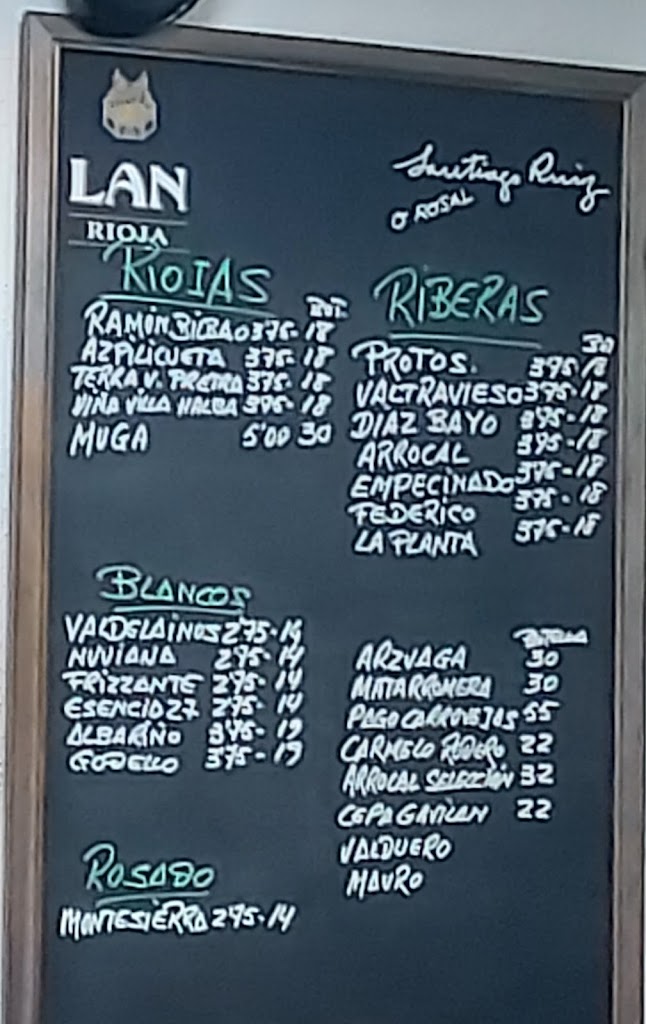 LAN
RIOJA
Santiago Ruiz
O ROSAL
RIOJAS
BOT.
RAMÓN BILBAO 375-18
AZPILICUETA 375-18
TERRA V. PIEDRA 375-18
VIÑA VILLA HALBA 375-18
MUGA 5'00 30
RIBERAS
PROTOS. 375-18
VALTRAVIESO 375-18
DIAZ BAYO 375-18
ARROCAL 375-18
EMPECINADO 375-18
FEDERICO 375-18
LA PLANTA 375-18
BLANCOS
VALDELAINOS 275-14
NUVIANA 275-14
FRIZZANTE 275-14
ESENCIA 27 275-14
ALBARIÑO 375-19
GODELLO 375-19
ROSADO
MONTESIERRA 275-14
BOTELLA
ARZUAGA 30
MATARROMERA 30
PAGO CARROVEJAS 55
CARMELO RODERO 22
ARROCAL SELECCIÓN 32
CEPA GAVILAN 22
VALDUERO
MAURO